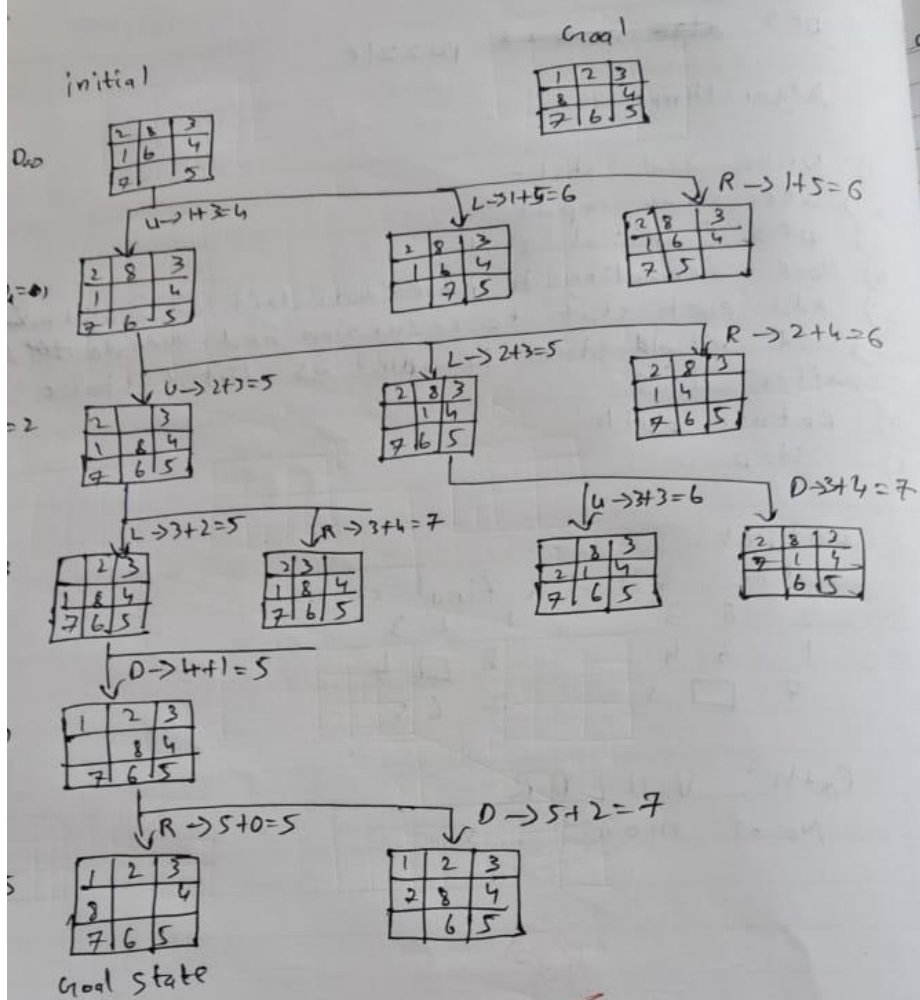 Goal
initial
1 2 3
8 4
7 6 5
2 8 3
1 6 4
7 5
U→1+3=4
L→1+5=6
R→1+5=6
2 8 3
1 4
7 6 5
2 8 3
1 6 4
7 5
2 8 3
1 6 4
7 5
U→2+3=5
L→2+3=5
R→2+4=6
= 2
2 3
1 8 4
7 6 5
2 8 3
1 4
7 6 5
2 8 3
1 4
7 6 5
L→3+2=5
R→3+4=7
U→3+3=6
D→3+4=7
2 3
1 8 4
7 6 5
2 3
1 8 4
7 6 5
8 3
2 1 4
7 6 5
2 8 3
7 1 4
6 5
D→4+1=5
1 2 3
8 4
7 6 5
R→5+0=5
D→5+2=7
1 2 3
8 4
7 6 5
1 2 3
7 8 4
6 5
Goal State